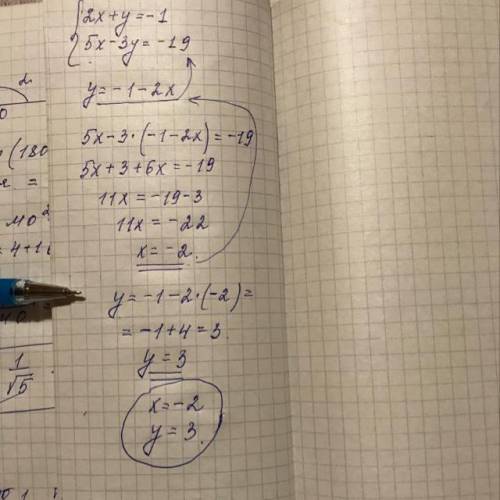 2x+y=-1
5x-3y=-19
y=-1-2x
5x-3·(-1-2x)=-19
5x+3+6x=-19
11x=-19-3
11x=-22
x=-2.
y=-1-2·(-2)=
=-1+4=3.
y=3
x=-2
y=3.
(180
=
40²
=4+1
1
√5